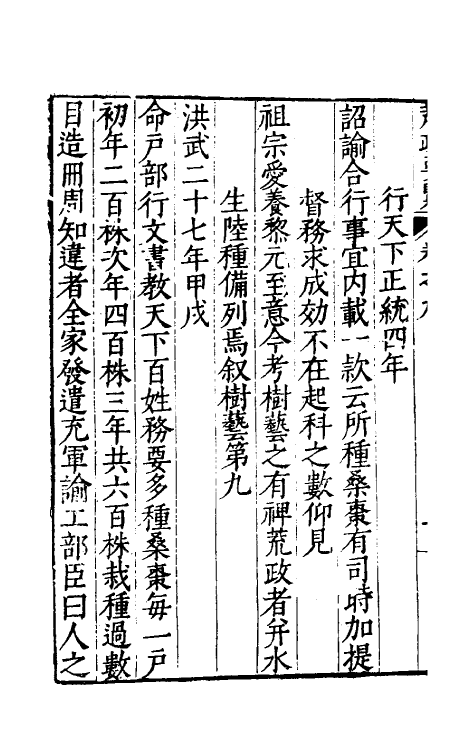 行天下正統四年
詔諭合行事宜內載一款云所種桑棗有司時加提
督務求成効不在起科之數仰見
祖宗愛養黎元至意今考樹藝之有裨荒政者并水
生陸種備列焉叙樹藝第九
洪武二十七年甲戌
命戸部行文書教天下百姓務要多種桑棗每一戸
初年二百株次年四百株三年共六百株栽種過數
目造冊周知違者全家發遣充軍諭工部臣曰人之